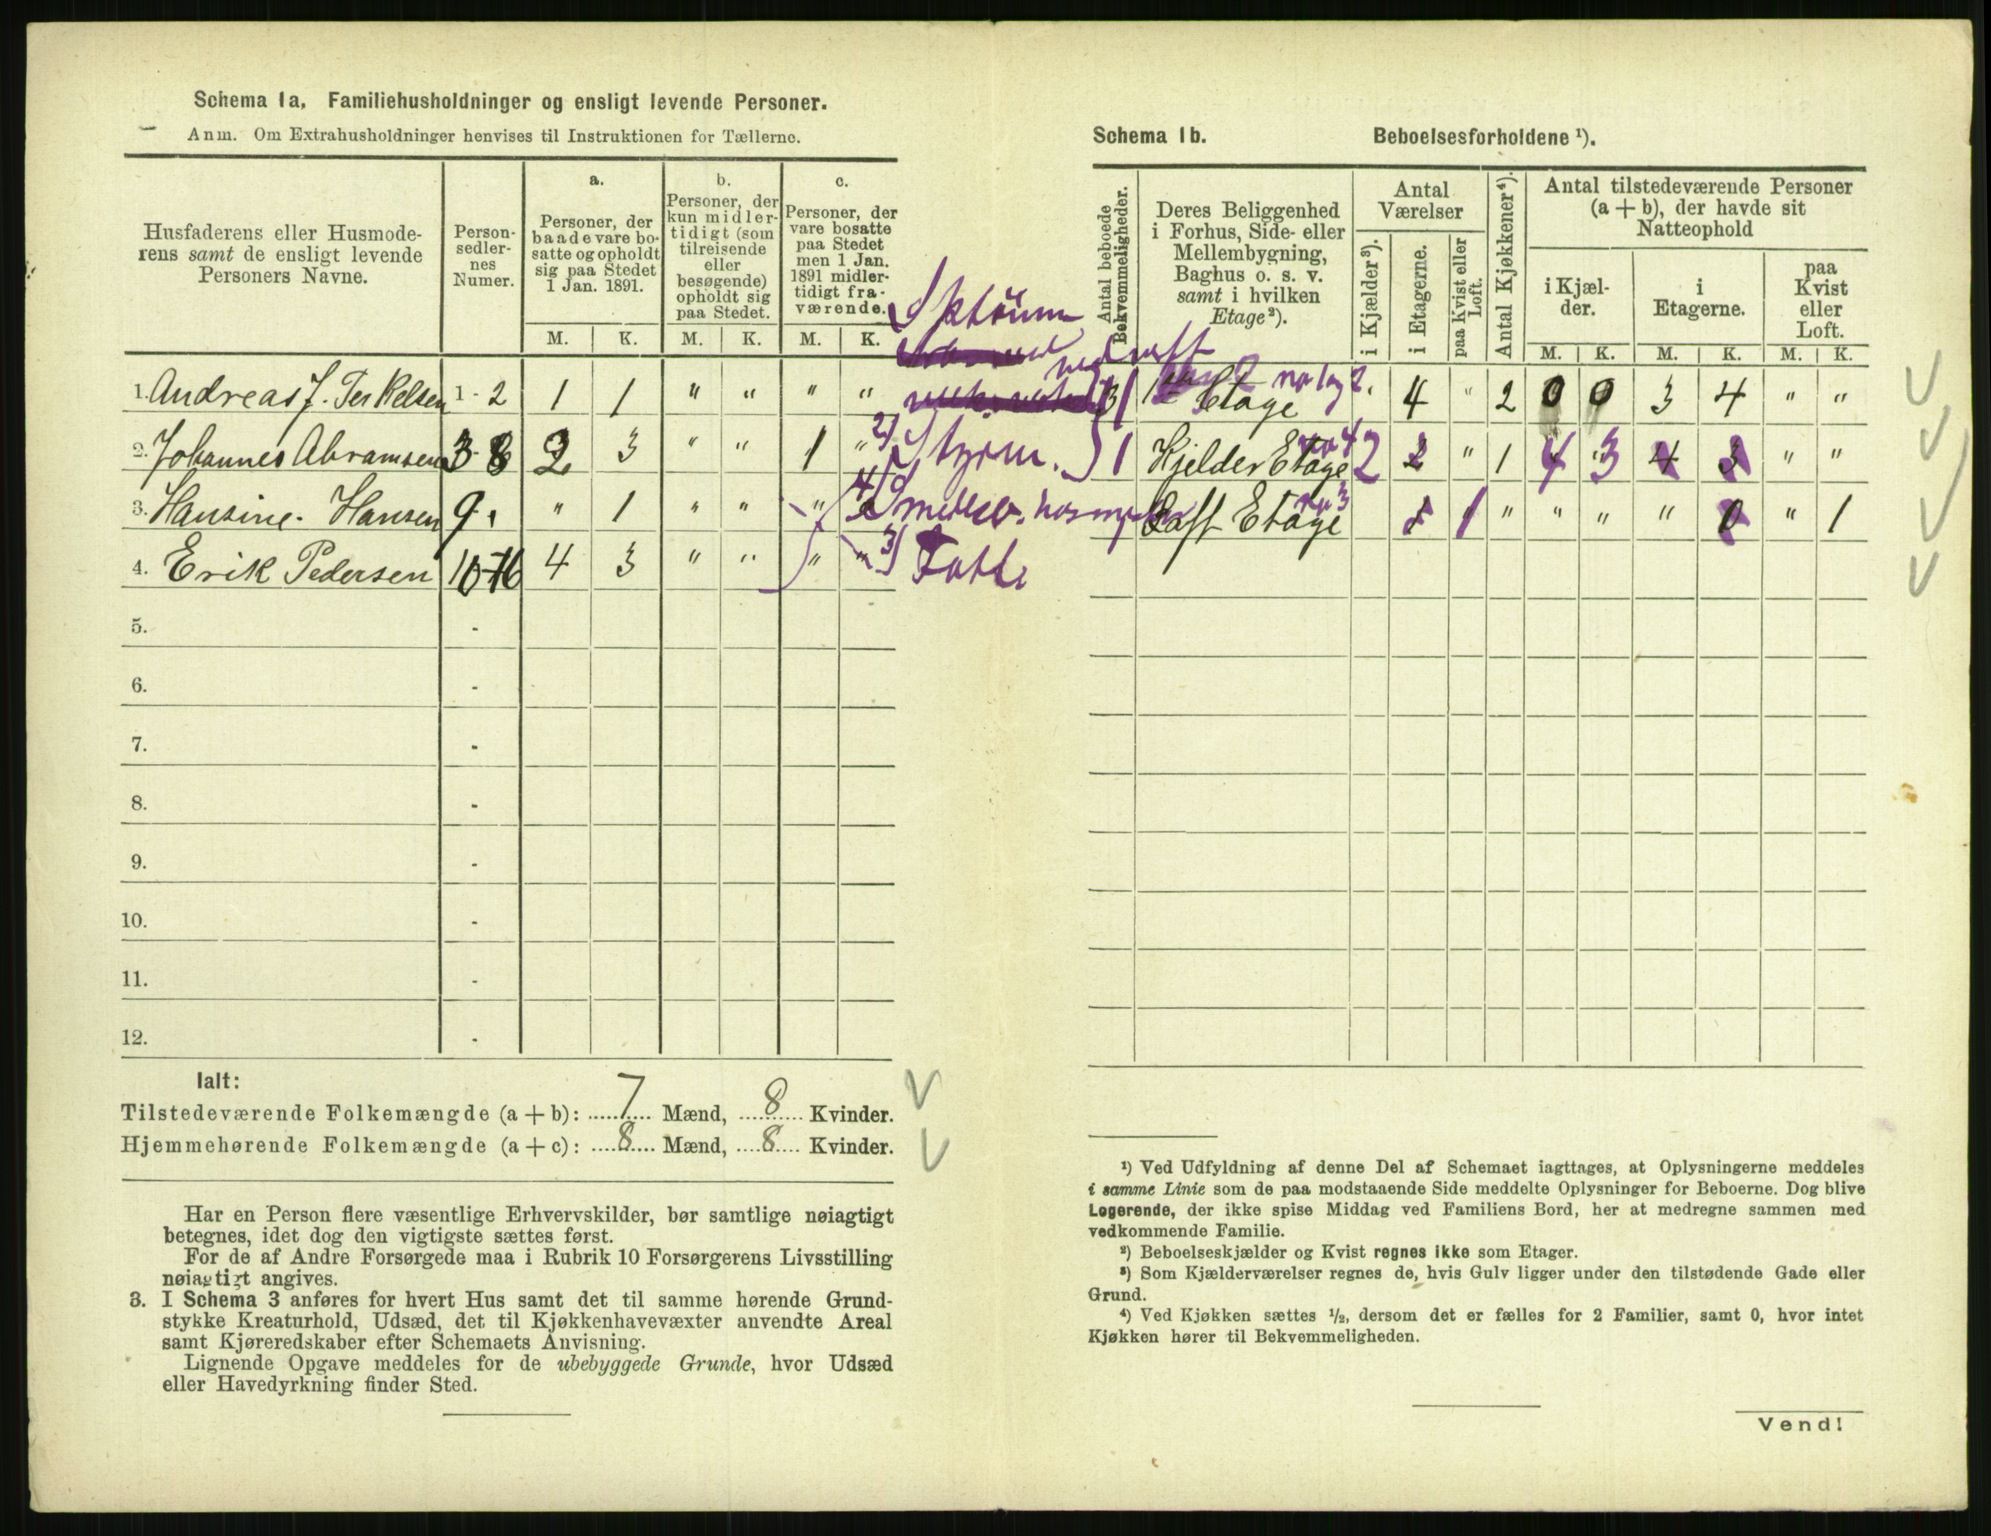 Schema 1a, Familiehusholdninger og ensligt levende Personer.
Anm. Om Extrahusholdninger henvises til Instruktionen for Tællerne.
Husfaderens eller Husmode-
rens samt de ensligt levende
Personers Navne.
Person-
sedler-
nes
Numer.
a.
Personer, der
baade vare bo-
satte og opholdt
sig paa Stedet
1 Jan. 1891.
b.
Personer, der
kun midler-
tidigt (som
tilreisende
eller
besøgende)
opholdt sig
paa Stedet.
c.
Personer, der
vare bosatte
paa Stedet
men 1 Jan.
1891 midler-
tidigt fra-
værende.
M. K. M. K. M. K.
1. Andreas J. Terkelsen 1-2 1 1 " " " "
2. Johannes Abramsen 3-8 2 3 " " 1 "
3. Hansine Hansen 9. " 1 " " "
4. Erik Pedersen 10-16 4 3 " " " "
5. -
6. -
7. -
8. -
9. -
10. -
11. -
12. -
2) Styrm.
3) Fatt.
Ialt:
Tilstedeværende Folkemængde (a + b): 7 Mænd, 8 Kvinder.
Hjemmehørende Folkemængde (a + c): 8 Mænd, 8 Kvinder.
Har en Person flere væsentlige Erhvervskilder, bør samtlige nøiagtigt
betegnes, idet dog den vigtigste sættes først.
For de af Andre Forsørgede maa i Rubrik 10 Forsørgerens Livsstilling
nøiagtigt angives.
3. I Schema 3 anføres for hvert Hus samt det til samme hørende Grund-
stykke Kreaturhold, Udsæd, det til Kjøkkenhavevæxter anvendte Areal
samt Kjøreredskaber efter Schemaets Anvisning.
Lignende Opgave meddeles for de ubebyggede Grunde, hvor Udsæd
eller Havedyrkning finder Sted.
Schema 1b. Beboelsesforholdene ¹).
Antal beboede
Bekvemmeligheder.
Deres Beliggenhed
i Forhus, Side- eller
Mellembygning,
Baghus o. s. v.
samt i hvilken
Etage²).
Antal
Værelser
i Kjælder³).
i Etagerne.
paa Kvist eller
Loft.
Antal Kjøkkener⁴).
Antal tilstedeværende Personer
(a + b), der havde sit
Natteophold
i Kjæl-
der.
i
Etagerne.
paa
Kvist
eller
Loft.
M. K. M. K. M. K.
Etage 4 " 2 0 0 3 4 " "
1 Kjelder Etage 2 " 1 4 3 " "
Loft Etage 1 " " " " 0 " 1
¹) Ved Udfyldning af denne Del af Schemaet iagttages, at Oplysningerne meddeles
i samme Linie som de paa modstaaende Side meddelte Oplysninger for Beboerne. Dog blive
Logerende, der ikke spise Middag ved Familiens Bord, her at medregne sammen med
vedkommende Familie.
²) Beboelseskjælder og Kvist regnes ikke som Etager.
³) Som Kjælderværelser regnes de, hvis Gulv ligger under den tilstødende Gade eller
Grund.
⁴) Ved Kjøkken sættes ½, dersom det er fælles for 2 Familier, samt 0, hvor intet
Kjøkken hører til Bekvemmeligheden.
Vend!